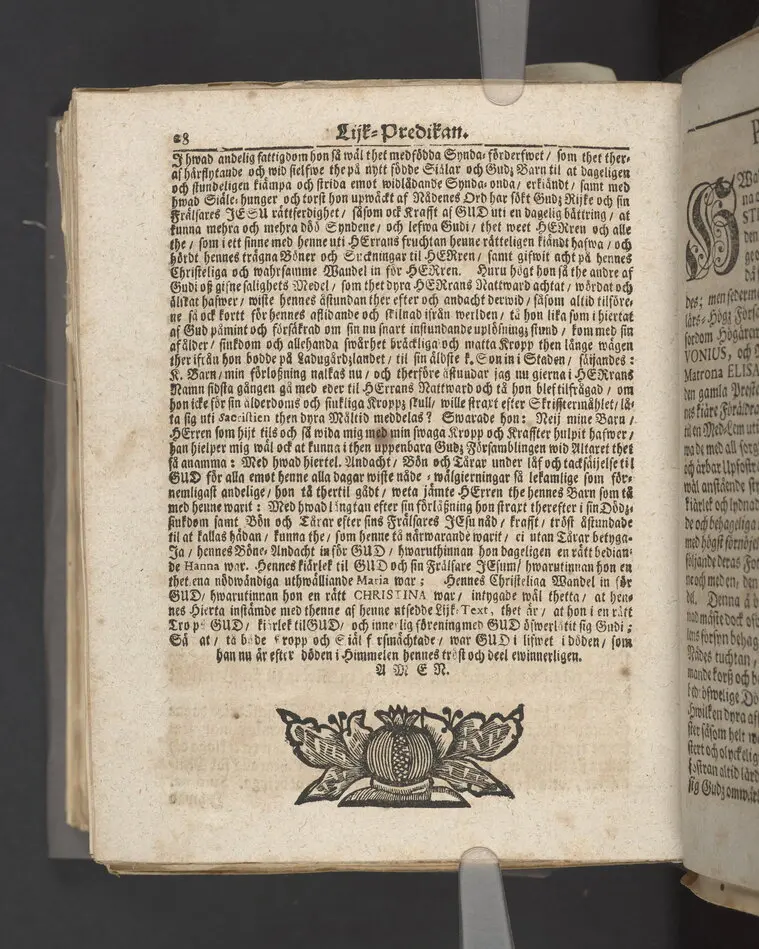 28
Lijk-Predikan.
I hwad andelig fattigdom hon så wäl thet medfödda Synda-förderfwet / som thet ther-
af härflytande och wid sielfwe the på nytt födde Siälar och Gudz Barn til at dageligen
och stundeligen kiämpa och strida emot widlådande Synda-onda / erkiändt / samt med
hwad Siäle-hunger och torst hon upwäckt af Nådenes Ord har sökt Gudz Rijke och sin
Frälsares JESU rättferdighet / såsom ock Krafft af GUD uti en dagelig bättring / at
kunna mehra och mehra döö Syndene / och lefwa Gudi / thet weet HERren och alle
the / som i ett sinne med henne uti HErrans fruchtan henne rätteligen kiändt hafwa / och
hördt hennes trägna Böner och Suckningar til HERren / samt gifwit acht på hennes
Christeliga och wahrsamme Wandel in för HERren. Huru högt hon så the andre af
Gudi oß gifne salighets Medel / som thet dyra HERrans Nattward achtat / wördat och
älskat hafwer / wiste hennes åstundan ther efter och andacht derwid / såsom altid tilföre-
ne så ock kortt för hennes aflidande och skilnad ifrån werlden / tå hon lika som i hiertat
af Gud påmint och försäkrad om sin nu snart instundande uplösningz stund / kom med sin
af ålder / siukdom och allehanda swårhet bräckliga och matta Kropp then långe wägen
ther ifrån hon bodde på Ladugårdzlandet / til sin äldste k. Son in i Staden / säijandes:
K. Barn / min förloßning nalkas nu / och therföre åstundar jag nu gierna i HERrans
Namn sidsta gången gå med eder til HErrans Nattward och tå hon blef tilfrågad / om
hon icke för sin ålderdoms och siukliga Kroppz skull / wille straxt efter Skrifftermåhlet / lå-
ta sig uti Sacristien then dyra Måltid meddelas? Swarade hon: Neij mine Barn /
HErren som hijt tils och så wida mig med min swaga Kropp och Kraffter hulpit hafwer /
han hielper mig wäl ock at kunna i then uppenbara Gudz Församblingen wid Altaret thet
så anamma: Med hwad hiertel. Andacht / Bön och Tårar under låf och tacksäijelse til
GUD för alla emot henne alla dagar wiste nåde-wälgierningar så lekamlige som för-
nemligast andelige / hon tå thertil gådt / weta jämte HErren the hennes Barn som tå
med henne warit: Med hwad längtan efter sin förloßning hon straxt therefter i sin Dödz-
siukdom samt Bön och Tårar efter sins Frälsares JEsu nåd / krafft / tröst åstundade
til at kallas hädan / kunna the / som henne tå närwarande warit / ei utan Tårar betyga.
Ja / hennes Böne-Andacht in för GUD / hwaruthinnan hon dageligen en rätt bedian-
de Hanna war. Hennes kiärlek til GUD och sin Frälsare JEsum / hwarutinnan hon en
thet ena nödwändiga uthwälliande Maria war; Hennes Christeliga Wandel in för
GUD / hwarutinnan hon en rätt CHRISTINA war / intygade wäl thetta / at hen-
nes Hierta instämde med thenne af henne utsedde Lijk-Text, thet är / at hon i en rätt
Tro på GUD / kiärlek til GUD / och innerlig förening med GUD öfwerlåtit sig Gudi;
Så at / tå både Kropp och Siäl försmächtade / war GUD i lifwet i döden / som
han nu är efter döden i Himmelen hennes tröst och deel ewinnerligen.
A M E N.